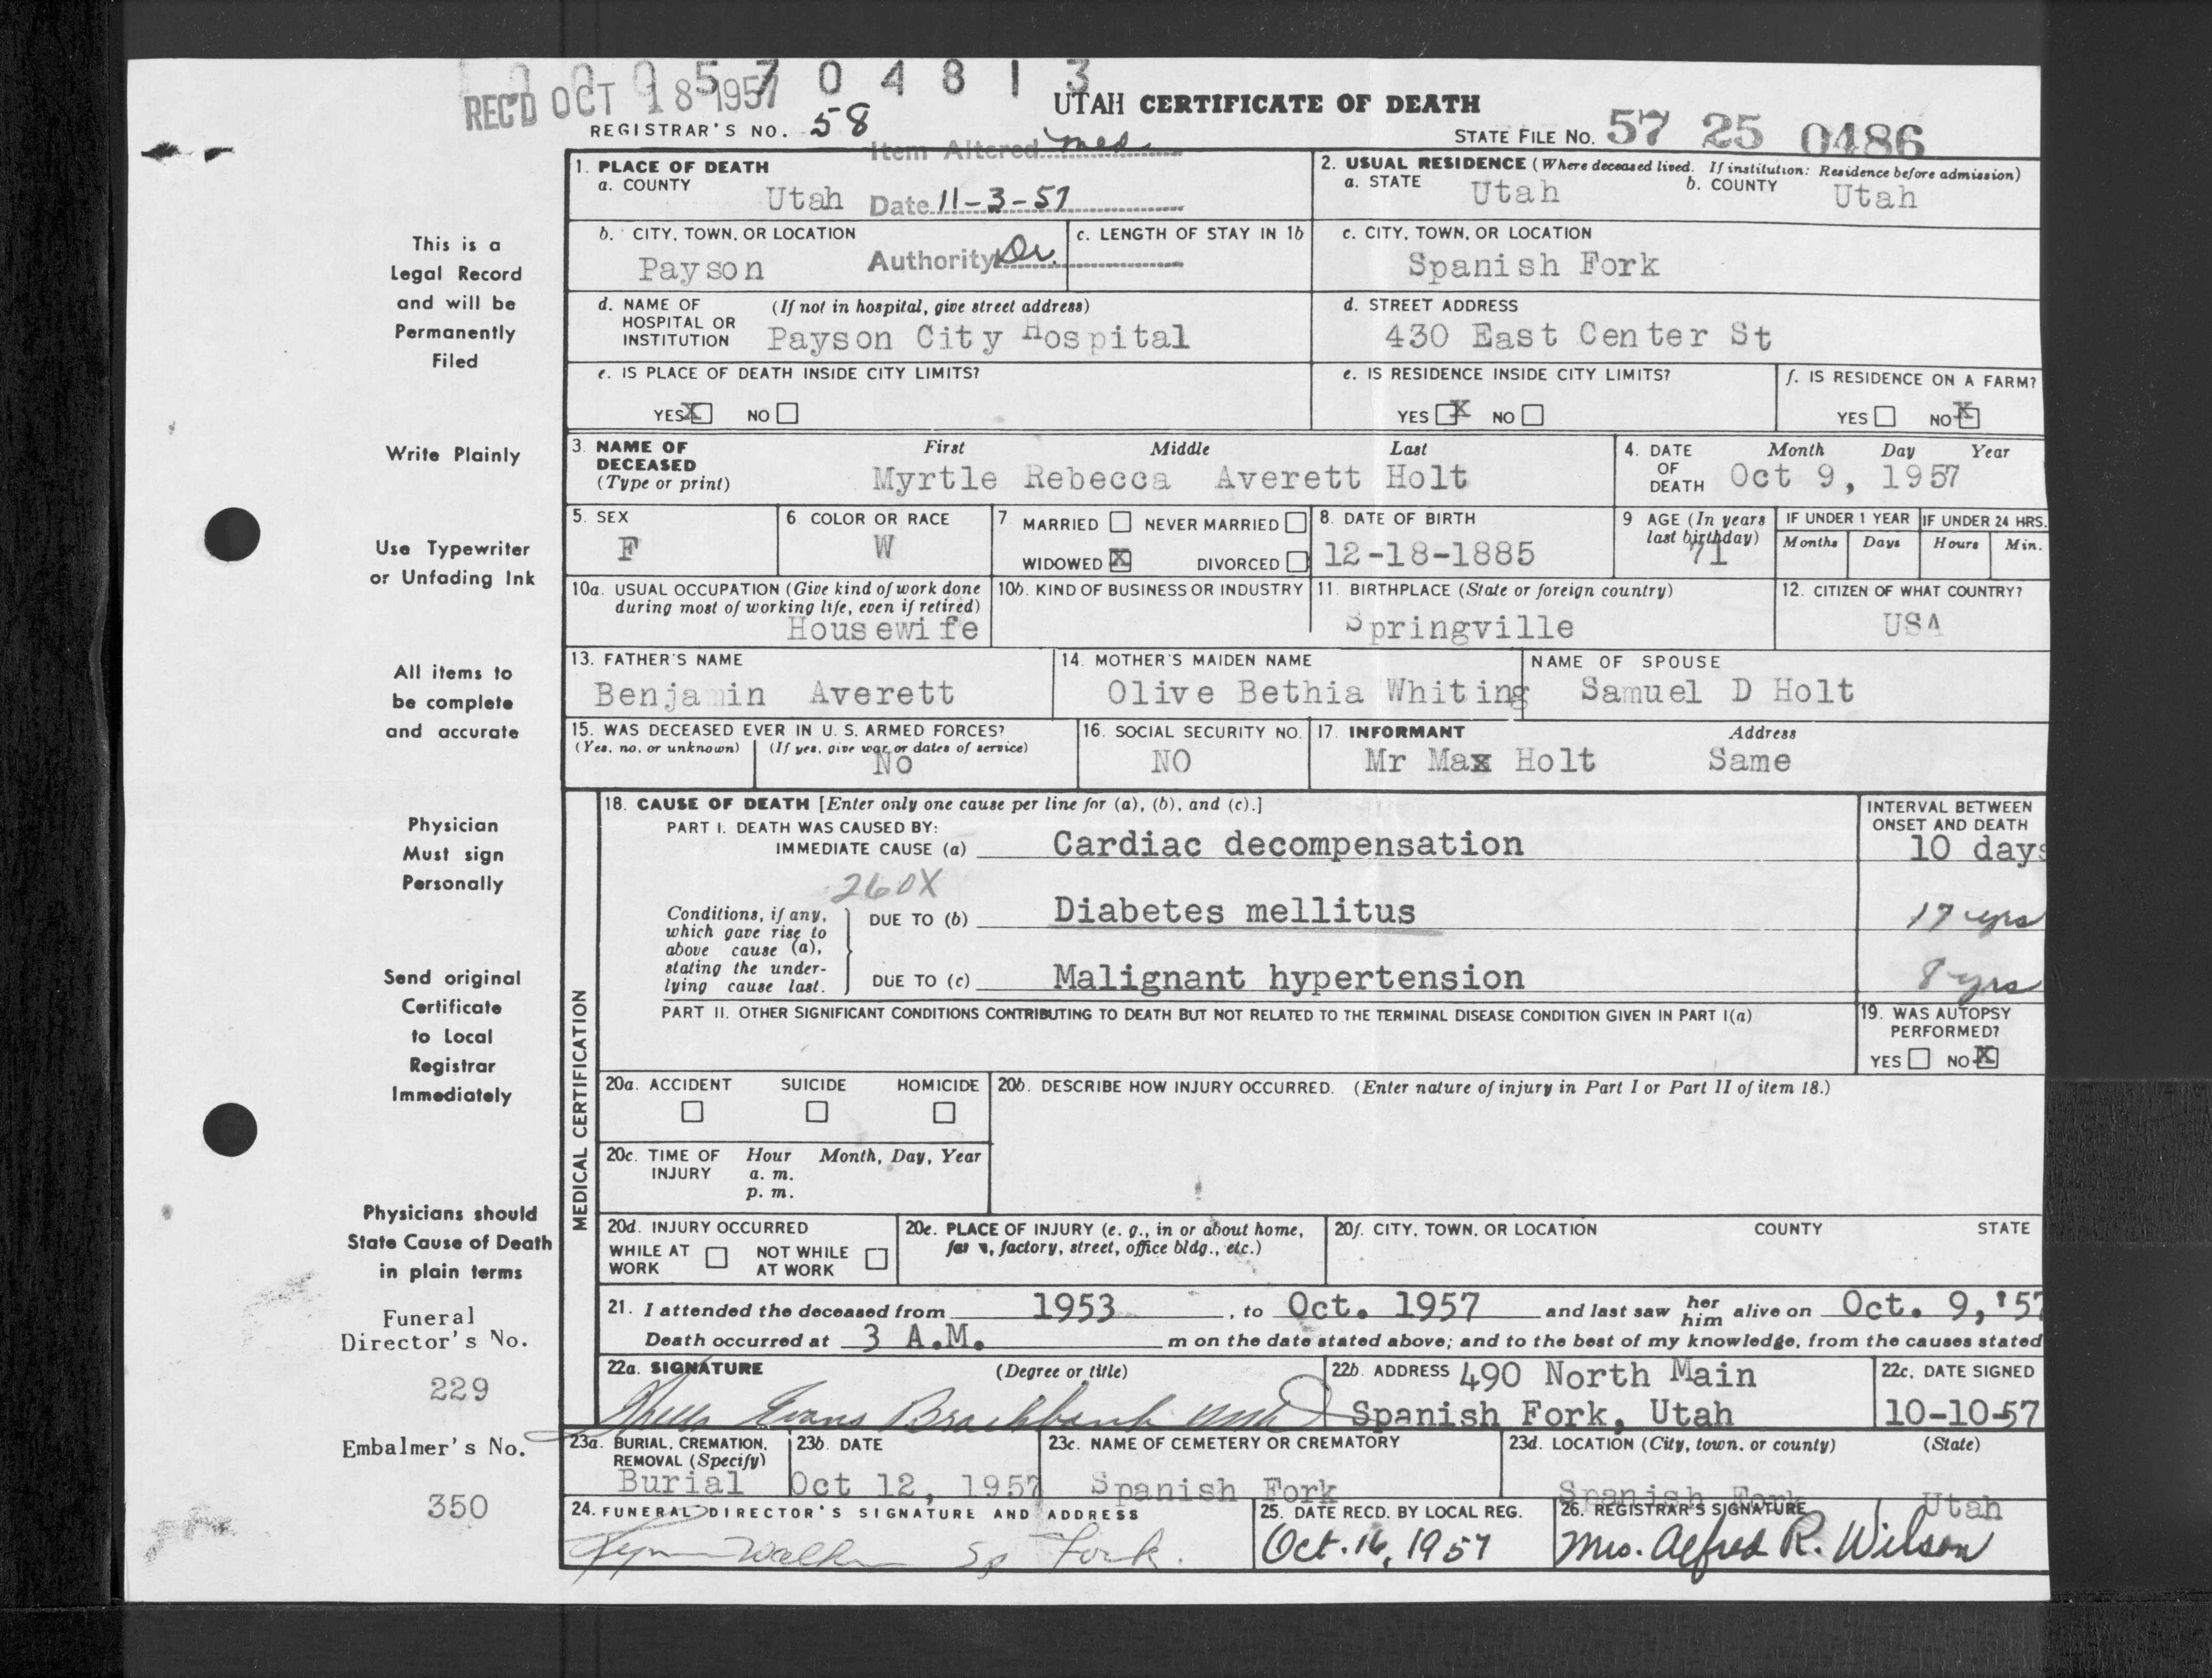 0005704813
REC'D OCT 18 1957
UTAH CERTIFICATE OF DEATH
REGISTRAR'S NO. 58
STATE FILE NO. 57 25 0486
Item Altered med
Date 11-3-57
Authority Dr.
1. PLACE OF DEATH
a. COUNTY Utah
2. USUAL RESIDENCE (Where deceased lived. If institution: Residence before admission)
a. STATE Utah b. COUNTY Utah
b. CITY, TOWN, OR LOCATION Payson
c. LENGTH OF STAY IN 1b
c. CITY, TOWN, OR LOCATION Spanish Fork
d. NAME OF HOSPITAL OR INSTITUTION (If not in hospital, give street address) Payson City Hospital
d. STREET ADDRESS 430 East Center St
e. IS PLACE OF DEATH INSIDE CITY LIMITS?
YES X NO
e. IS RESIDENCE INSIDE CITY LIMITS?
YES X NO
f. IS RESIDENCE ON A FARM?
YES NO X
3. NAME OF DECEASED (Type or print) First Middle Last
Myrtle Rebecca Averett Holt
4. DATE OF DEATH Month Day Year
Oct 9, 1957
5. SEX F
6 COLOR OR RACE W
7 MARRIED NEVER MARRIED
WIDOWED X DIVORCED
8. DATE OF BIRTH 12-18-1885
9 AGE (In years last birthday) 71
IF UNDER 1 YEAR Months Days
IF UNDER 24 HRS. Hours Min.
10a. USUAL OCCUPATION (Give kind of work done during most of working life, even if retired) Housewife
10b. KIND OF BUSINESS OR INDUSTRY
11. BIRTHPLACE (State or foreign country) Springville
12. CITIZEN OF WHAT COUNTRY? USA
13. FATHER'S NAME Benjamin Averett
14. MOTHER'S MAIDEN NAME Olive Bethia Whiting
NAME OF SPOUSE Samuel D Holt
15. WAS DECEASED EVER IN U. S. ARMED FORCES?
(Yes, no, or unknown) (If yes, give war or dates of service) No
16. SOCIAL SECURITY NO. NO
17. INFORMANT Address
Mr Max Holt Same
MEDICAL CERTIFICATION
18. CAUSE OF DEATH [Enter only one cause per line for (a), (b), and (c).]
INTERVAL BETWEEN ONSET AND DEATH
PART I. DEATH WAS CAUSED BY:
IMMEDIATE CAUSE (a) Cardiac decompensation 10 days
260X
Conditions, if any, which gave rise to above cause (a), stating the underlying cause last.
DUE TO (b) Diabetes mellitus 17 yrs
DUE TO (c) Malignant hypertension 8 yrs
PART II. OTHER SIGNIFICANT CONDITIONS CONTRIBUTING TO DEATH BUT NOT RELATED TO THE TERMINAL DISEASE CONDITION GIVEN IN PART I(a)
19. WAS AUTOPSY PERFORMED?
YES NO X
20a. ACCIDENT SUICIDE HOMICIDE
20b. DESCRIBE HOW INJURY OCCURRED. (Enter nature of injury in Part I or Part II of item 18.)
20c. TIME OF INJURY Hour Month, Day, Year
a. m.
p. m.
20d. INJURY OCCURRED
WHILE AT WORK NOT WHILE AT WORK
20e. PLACE OF INJURY (e. g., in or about home, farm, factory, street, office bldg., etc.)
20f. CITY, TOWN, OR LOCATION COUNTY STATE
21. I attended the deceased from 1953, to Oct. 1957 and last saw her him alive on Oct. 9, '57
Death occurred at 3 A.M. m on the date stated above; and to the best of my knowledge, from the causes stated
22a. SIGNATURE (Degree or title)
Evans Brockbank
22b. ADDRESS 490 North Main
Spanish Fork, Utah
22c. DATE SIGNED 10-10-57
23a. BURIAL, CREMATION, REMOVAL (Specify) Burial
23b. DATE Oct 12, 1957
23c. NAME OF CEMETERY OR CREMATORY Spanish Fork
23d. LOCATION (City, town, or county) (State)
Spanish Fork Utah
24. FUNERAL DIRECTOR'S SIGNATURE AND ADDRESS
Sp Fork.
25. DATE RECD. BY LOCAL REG. Oct. 16, 1957
26. REGISTRAR'S SIGNATURE Mrs. Alfred R. Wilson
This is a
Legal Record
and will be
Permanently
Filed
Write Plainly
Use Typewriter
or Unfading Ink
All items to
be complete
and accurate
Physician
Must sign
Personally
Send original
Certificate
to Local
Registrar
Immediately
Physicians should
State Cause of Death
in plain terms
Funeral
Director's No.
229
Embalmer's No.
350